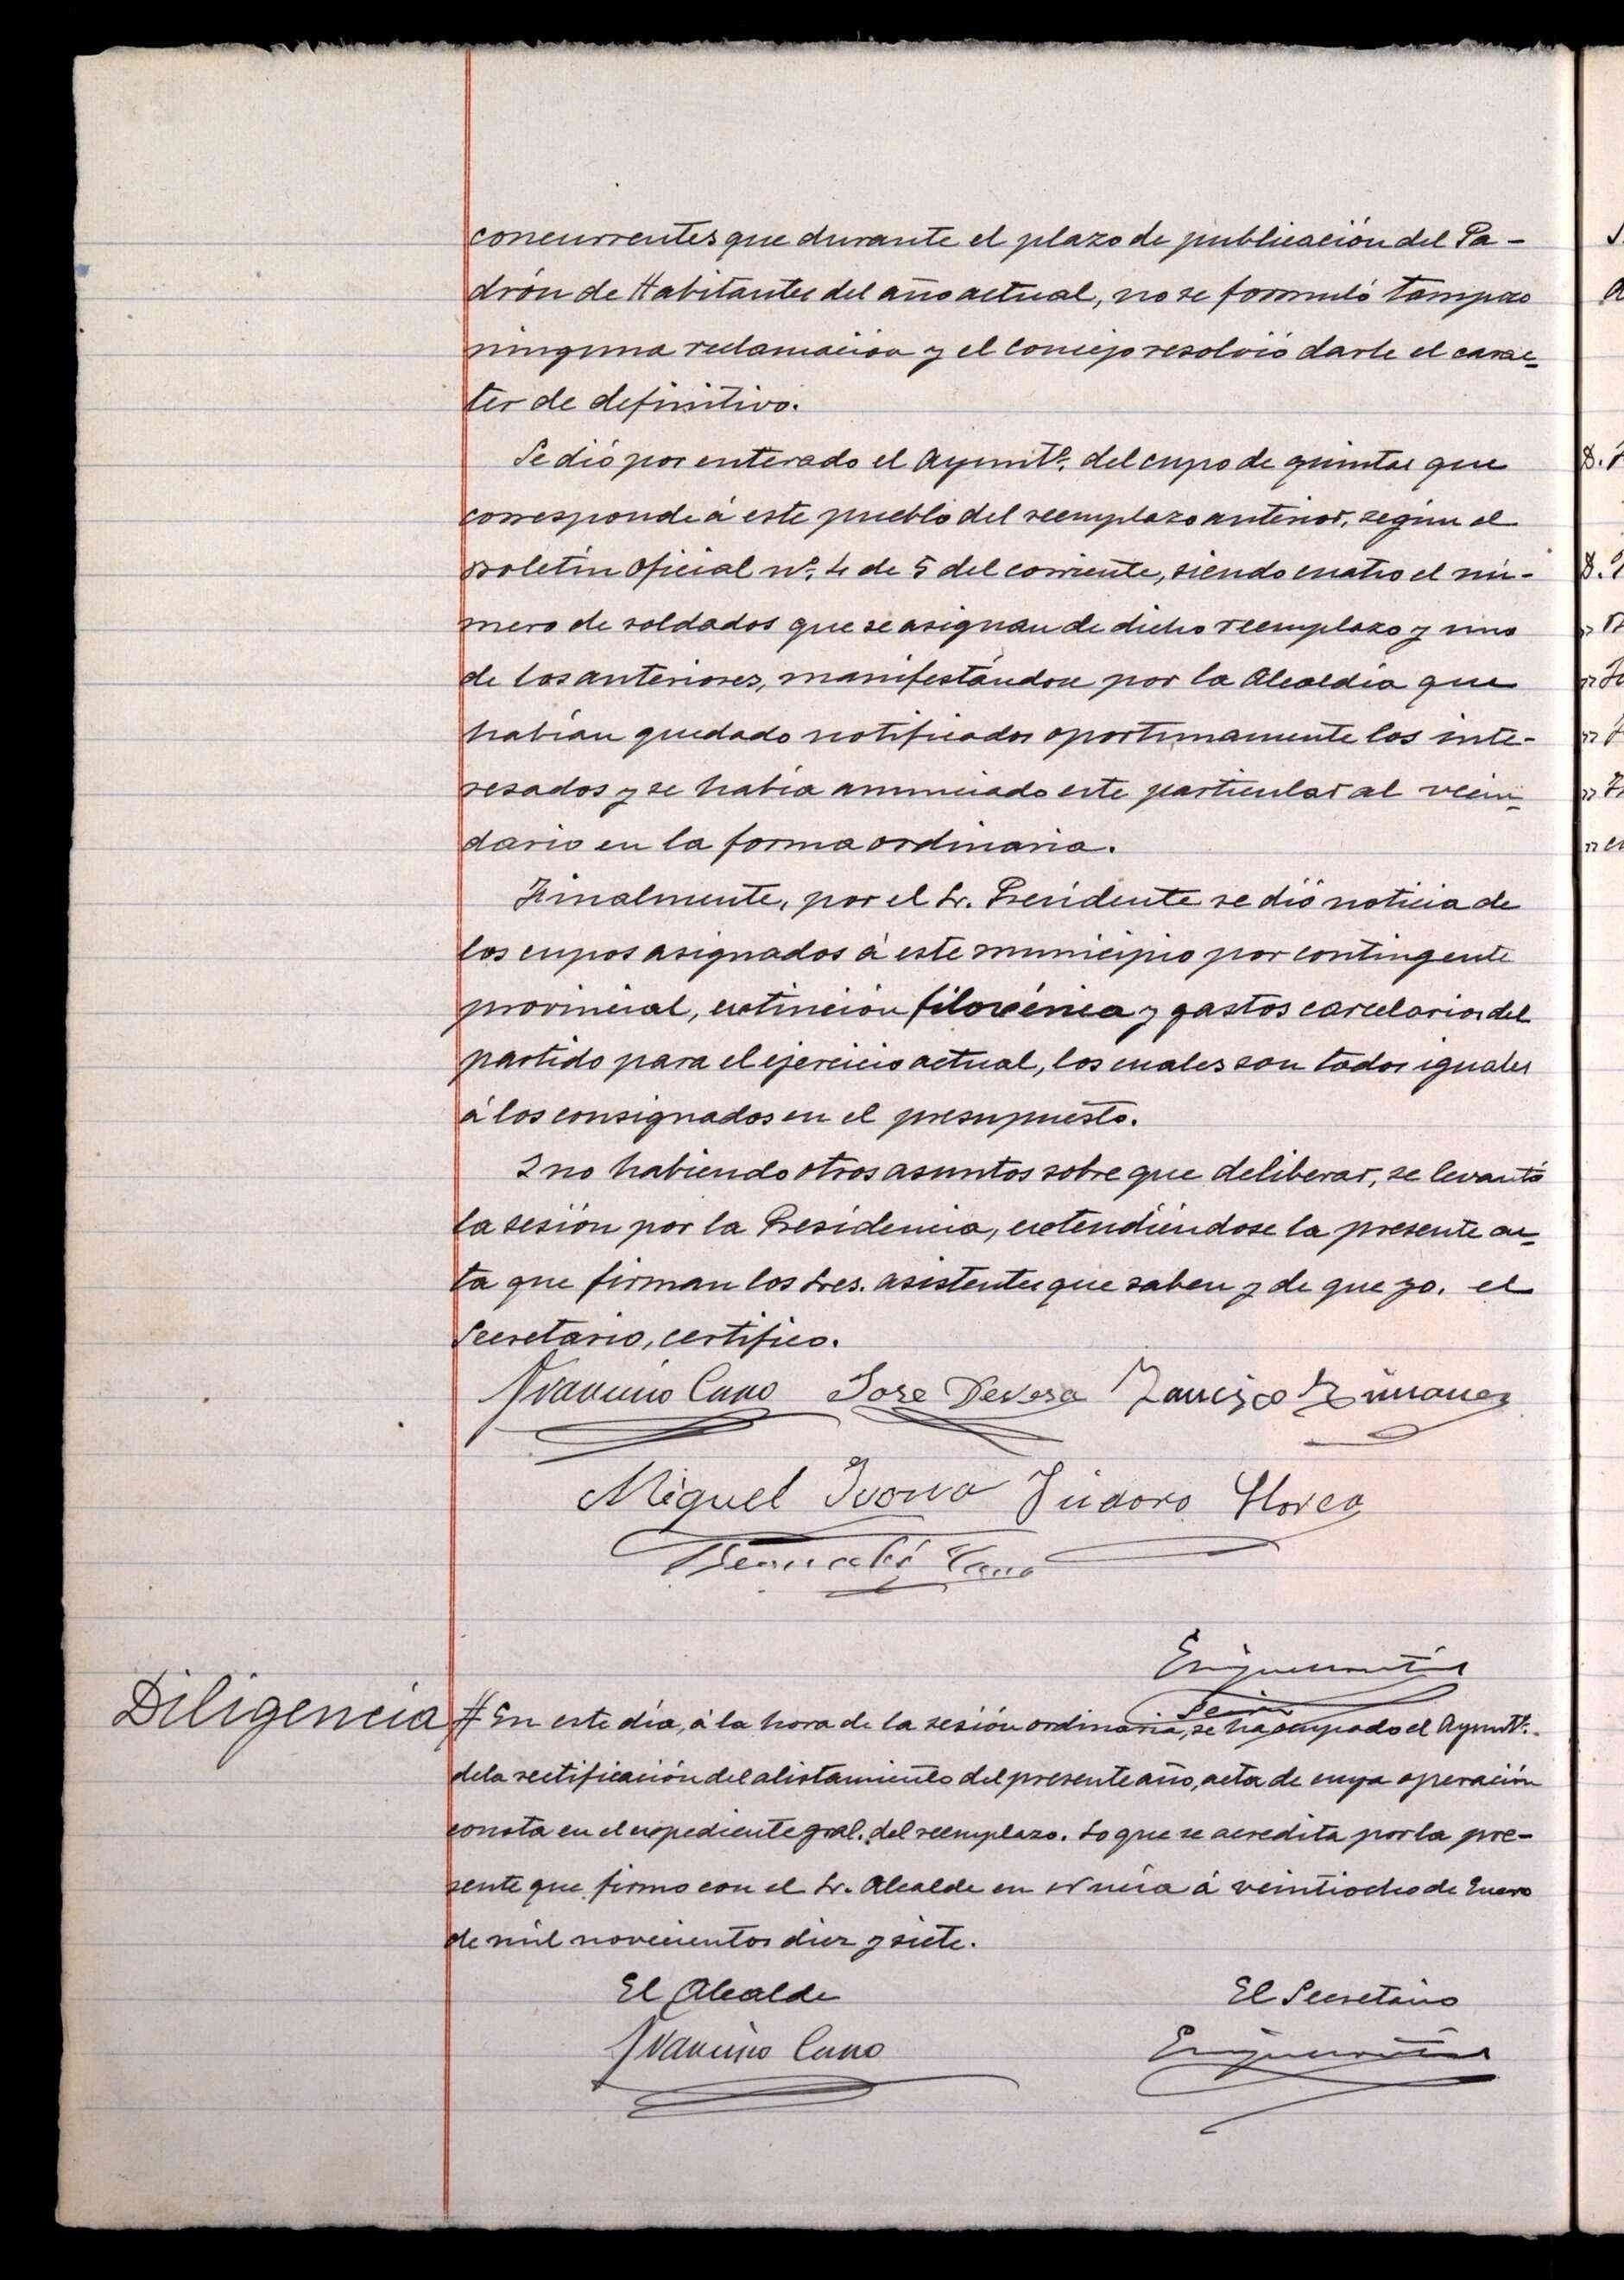 concurrentes que durante el plazo de publicación del Pa-
drón de Habitantes del año actual, no se formuló tampoco
ninguna reclamación y el Concejo resolvió darle el carac-
ter de definitivo.
Se dió por enterado el Ayuntº. del cupo de quintas que
corresponde á este pueblo del reemplazo anterior, según el
Boletín Oficial nº. 4 de 5 del corriente, siendo cuatro el nú-
mero de soldados que se asignan de dicho reemplazo y uno
de los anteriores, manifestándose por la Alcaldía que
habían quedado notificados oportunamente los inte-
resados y se había anunciado este particular al vecin-
dario en la forma ordinaria.
Finalmente, por el Sr. Presidente se dió noticia de
los cupos asignados á este municipio por contingente
provincial, extinción filoxérica y gastos carcelarios del
partido para el ejercicio actual, los cuales son todos iguales
á los consignados en el presupuesto.
Y no habiendo otros asuntos sobre que deliberar, se levantó
la sesión por la Presidencia, extendiéndose la presente ac-
ta que firman los Sres. asistentes que saben y de que yo. el
Secretario, certifico.
Cano José Devesa Francisco
Miguel Llorca
Cano
Srio
Diligencia # En este día, á la hora de la sesión ordinaria, se ha ocupado el Ayuntº.
de la rectificación del alistamiento del presente año, acta de cuya operación
consta en el expediente gral. del reemplazo. Lo que se acredita por la pre-
sente que firmo con el Sr. Alcalde en Nucía á veintiocho de Enero
de mil novecientos diez y siete.
El Alcalde El Secretario
Cano